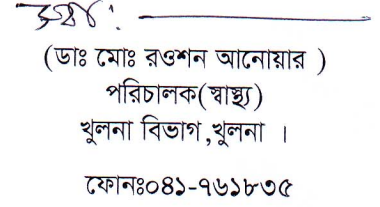 (ডাঃ মোঃ রওশন আনোয়ার )
পরিচালক(স্বাস্থ্য)
খুলনা বিভাগ,খুলনা ।
ফোনঃ০৪১-৭৬১৮৩৫